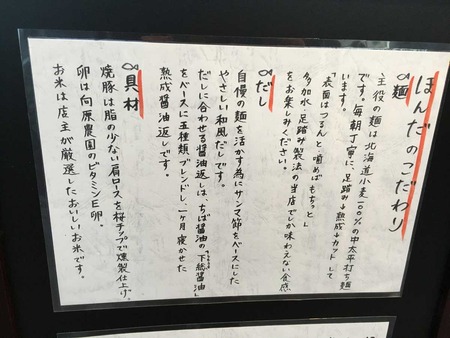 ほんだのこだわり
∞麺
主役の麺は北海道小麦100%の中太平打ち麺
です。毎朝丁寧に、足踏み→熟成→カットして
います。
「表面はつるんと、噛めばもちっと」
多加水・足踏み製法の当店でしか味わえない食感
をお楽しみください。
∞だし
自慢の麺を活かす為にサンマ節をベースにした
やさしい和風だしです。
だしに合わせる醤油返しは、ちば醤油の「下総醤油」
をベースに五種類ブレンドし、一ヶ月寝かせた
熟成醤油返しです。
∞具材
焼豚は脂の少ない肩ロースを桜チップで燻製仕上げ。
卵は向原農園のビタミンE卵。
お米は店主が厳選したおいしいお米です。